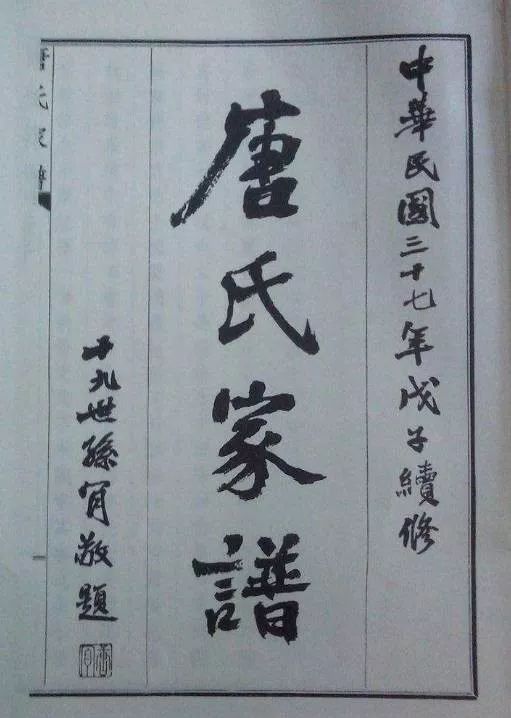 中華民國三十七年戊子續修
唐氏家譜
九世孫肎敬題
氏家譜